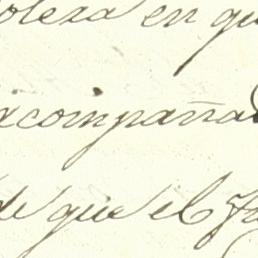 oleza en qu
acompaña
de que el